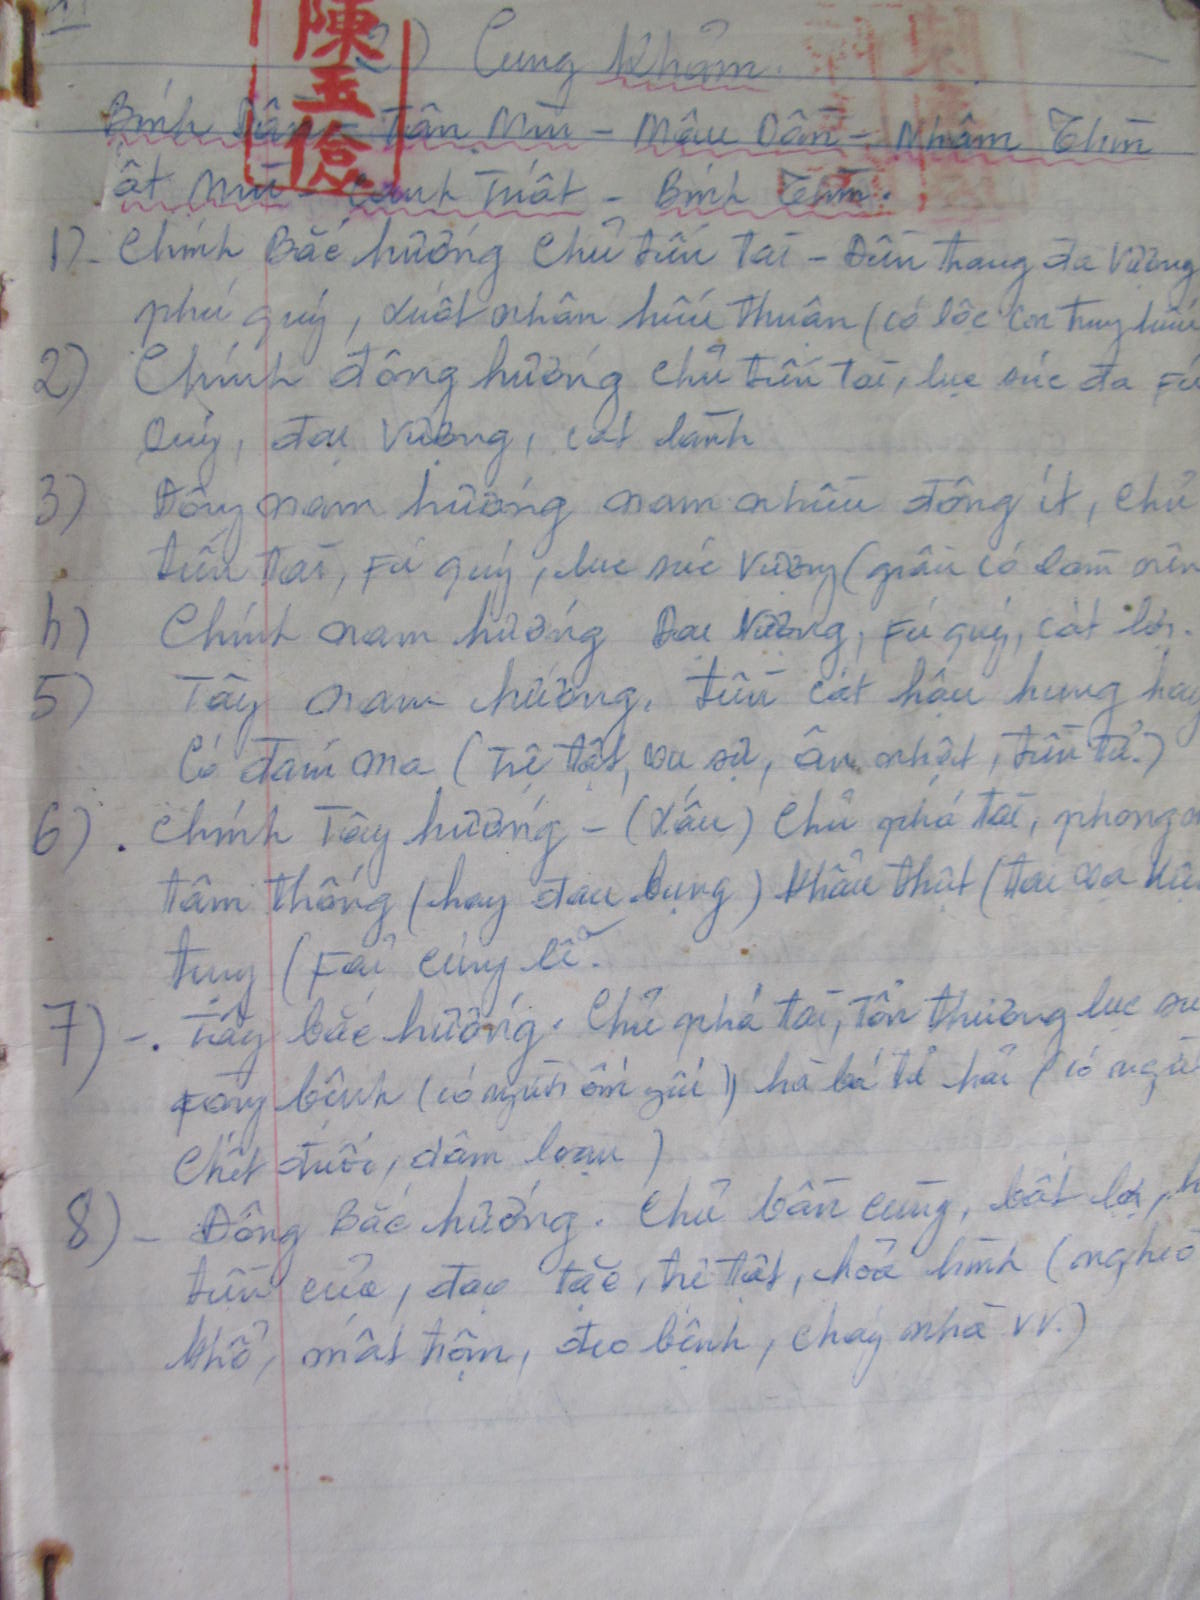 2) Cung Khảm.
陳玉儉
Bính Dần - Tân Mùi - Mậu Dần - Nhâm Thìn
ất Mùi - Canh Tuất - Bính Thìn.
1)- Chính Bắc hướng chủ tiến tài - Điền trang đa Vượng
phú quý, xuất nhân hiếu thuân (có lộc con trung hiếu
2) Chính đông hướng chủ tiến tài, lục súc đa Fú
Quý, đại Vượng, cát lành
3) Đông nam hướng nam nhiều đông ít, chủ
tiến tài, Fú quý, lục súc Vượng (giầu có làm nên
4) Chính nam hướng Đại Vượng, Fú quý, cát lợi.
5) Tây nam hướng, tiền cát hậu hung hay
có đám ma (tê tật, sự, ôn nhật, tiền tử.)
6). Chính Tây hướng - (xấu) chủ phá tài, phong
tâm thống (hay đau bụng) khẩu thiệt (tai
tụng (Fải cúng lễ.
7)-. Tây bắc hướng. Chủ phá tài, tổn thương lục sú
Fong bệnh (có người ốm yếu) hà bá hải (có ngườ
chết đuối, dâm loạn)
8)- Đông Bắc hướng. Chủ bần cùng, bất lợi, h
tiền của, đạo tặc, tê tật, hỏa hình (nghèo
khổ, mất trộm, đeo bệnh, cháy nhà vv.)